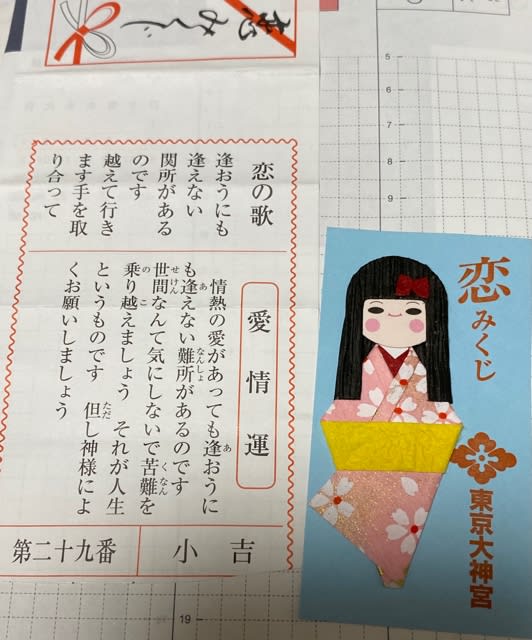 恋みくじ
恋の歌
逢おうにも
逢えない
関所がある
のです
越えて行き
ます手を取
り合って
愛情運
情熱の愛があっても逢おうに
も逢えない難所があるのです
世間なんて気にしないで苦難を
乗り越えましょう それが人生
というものです 但し神様によ
くお願いしましょう
小吉
第二十九番
恋みくじ
東京大神宮
5
8
9
19